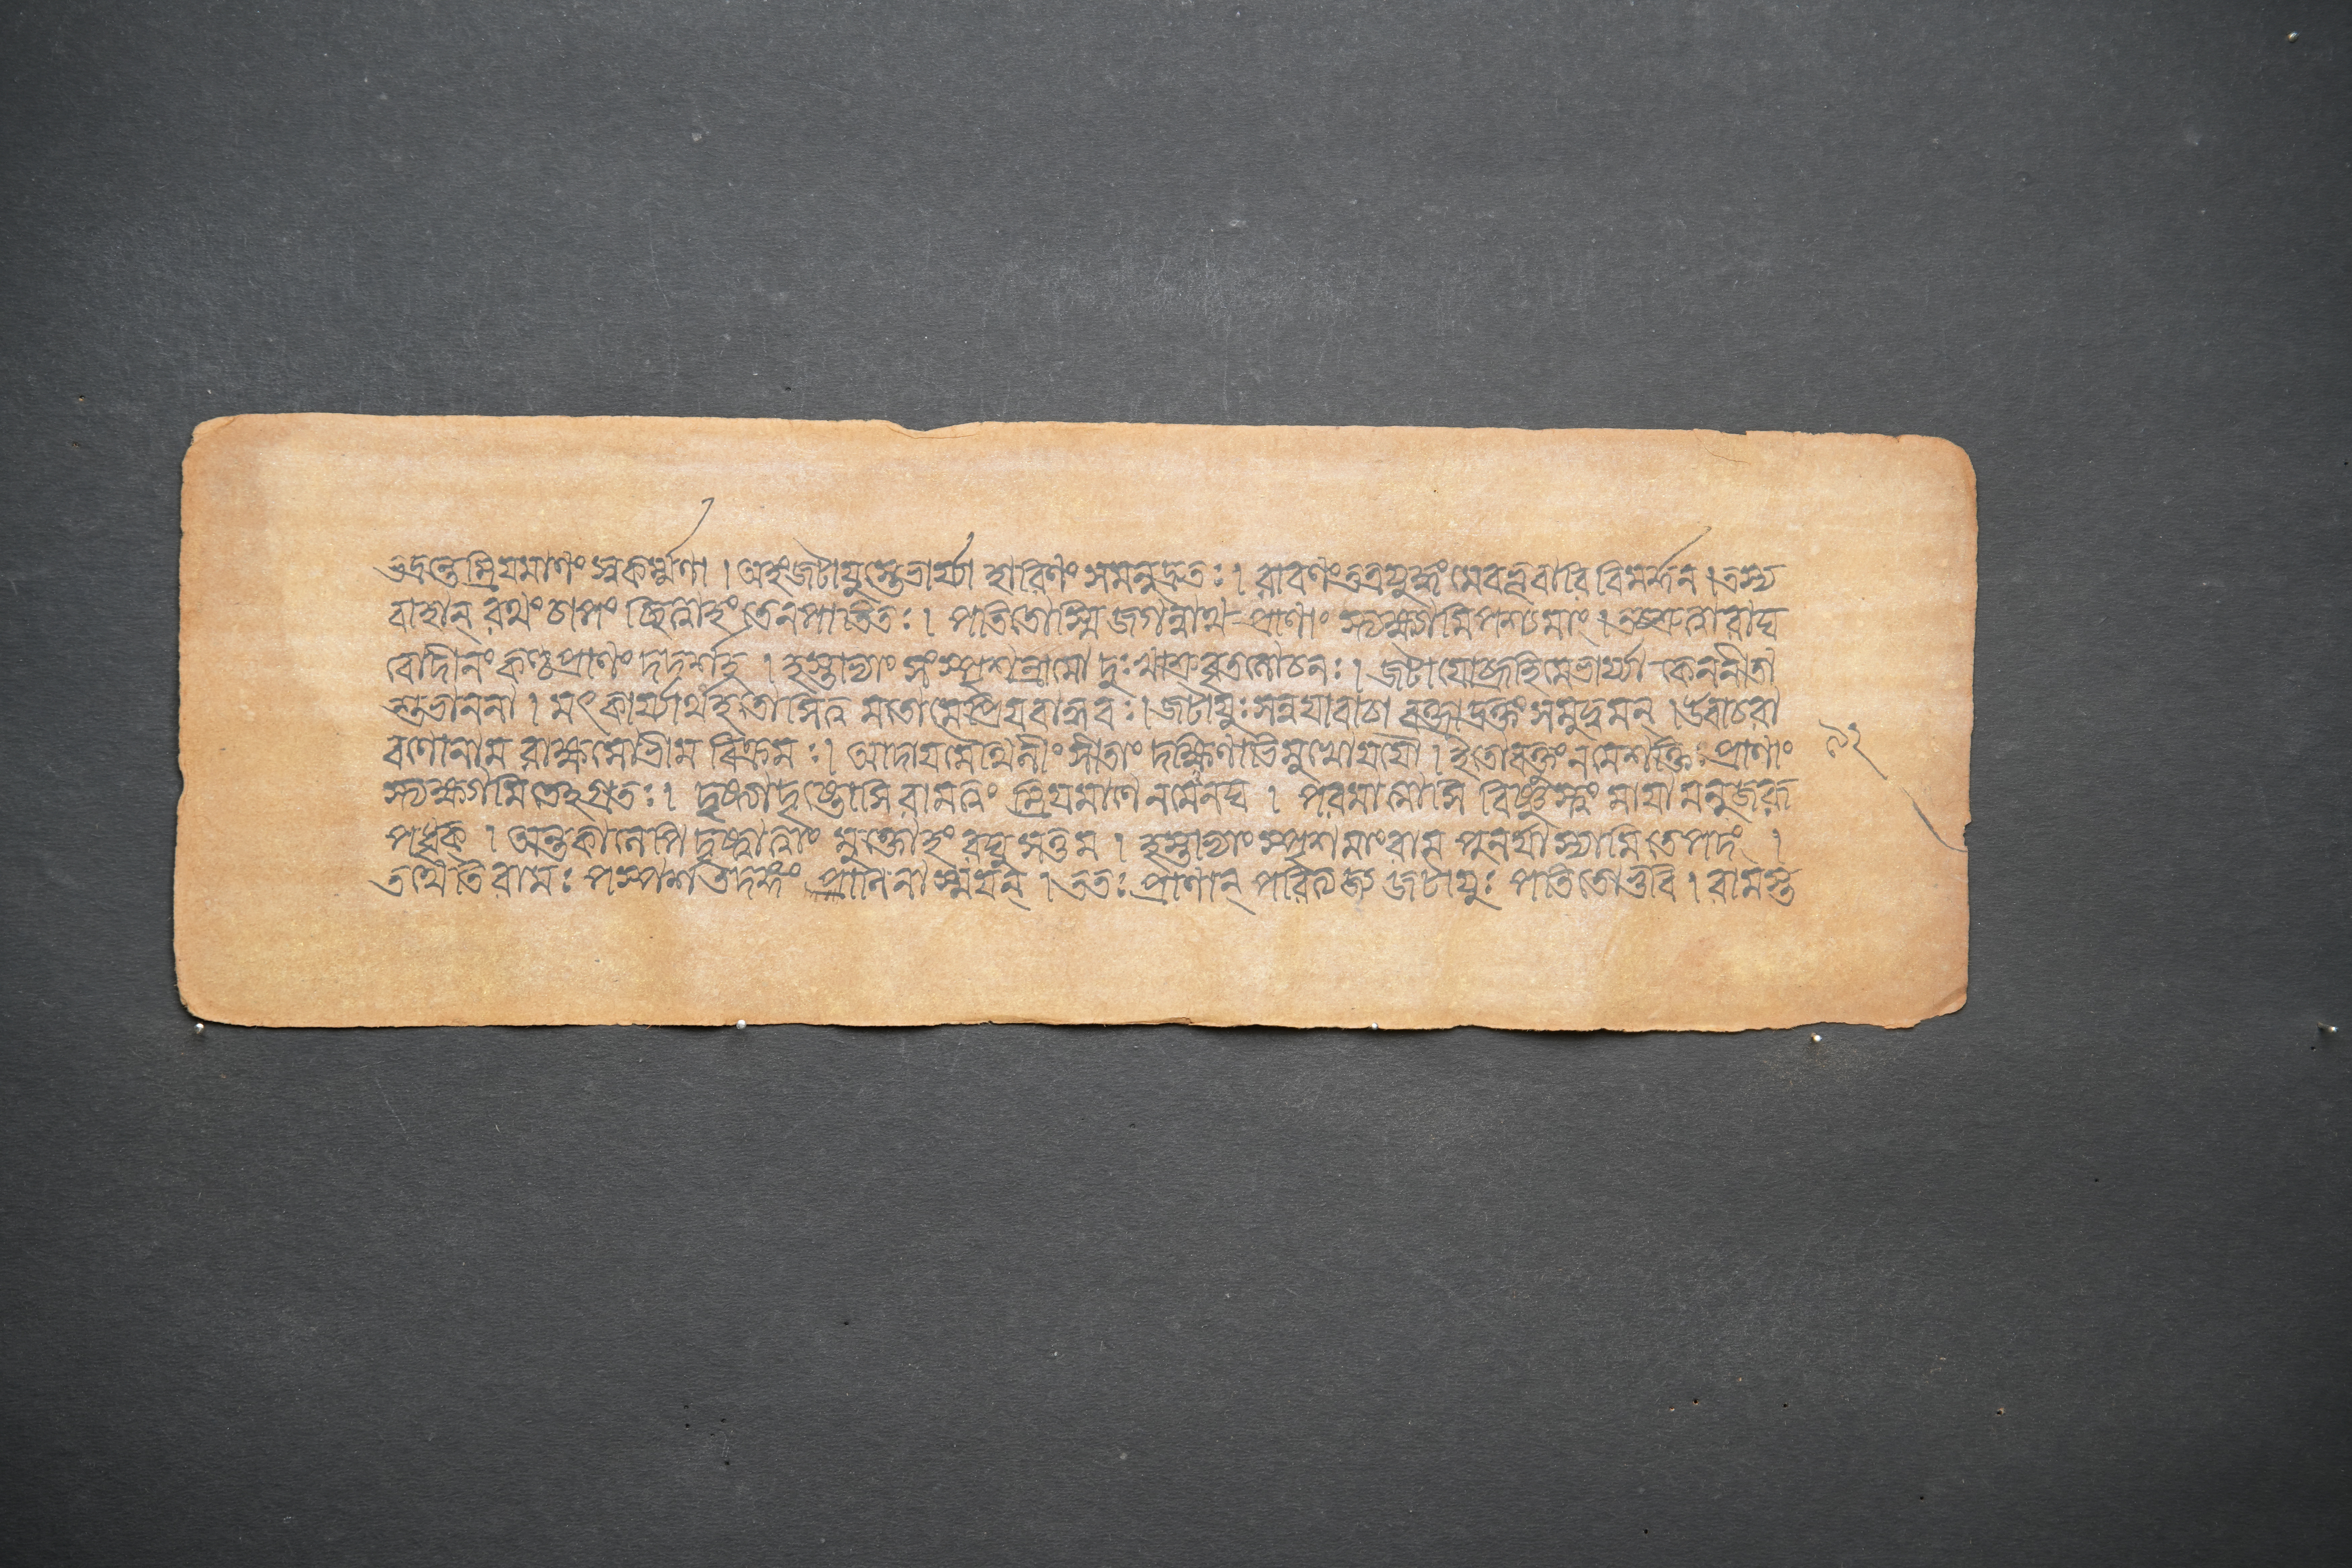 ভদ্রন্তু ম্রিযমাণং স্বকর্ম্মণা । অহং জটাযুস্তে ভার্য্যা হারিণং সমনুদ্রুতঃ । রাবণং তত্র যুদ্ধং মে বভূবারি বিমর্দ্দন । তস্য
বাহান্ রথং চাপং ছিত্বাহং তেন পাতিতঃ । পতিতোস্মি জগন্নাথ প্রাণাং স্ত্যক্ষ্যামি পশ্য মাং । তচ্ছ্রুত্বা রাঘ
বো দীনং কণ্ঠপ্রাণং দদর্শ হ । হস্তাভ্যাং সংস্পৃশন্রামো দুঃখাশ্রুবৃতলোচনঃ । জটাযো ব্রূহি মে ভার্য্যা কেন নীতা
শুভাননা । মৎকার্য্যার্থং হতোসি ত্ব মতো মে প্রিযবান্ধবঃ । জটাযুঃ সন্নযা বাচা বক্ত্রাদ্রক্তং সমুদ্বমন্ । উবাচ রা
বণো নাম রাক্ষসো ভীম বিক্রমঃ । আদায মৈথিলীং সীতাং দক্ষিণাভিমুখো যযৌ । ইতো বক্তুং ন মে শক্তিঃ প্রাণাং
স্ত্যক্ষ্যামি তেহগ্রতঃ । দৃষ্ট্যা দৃষ্টোসি রাম ত্বং ম্রিযমাণেন মেনঘ । পরমাত্মাসি বিষ্ণুস্ত্বং মাযা মনুজরূ
পধৃক্ । অন্তকালেপি দৃষ্ট্বা ত্বাং মুক্তোহং রঘুসত্তম । হস্তাভ্যাং স্পৃশ মাং রাম পুনর্যাস্যামি তে পদং ।
তথেতি রামঃ পস্পর্শ তদঙ্গং পাণিনা স্মযন্ । ততঃ প্রাণান্ পরিত্যজ্য জটাযুঃ পতিতো ভুবি । রামস্ত
৯২